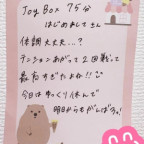 Joy Box 75分
はじめましてさん
体調大丈夫...?
テンションあがって2回戦して
最高すぎたよね!!
今日はゆっくり休んで
明日からもがんばろっ!